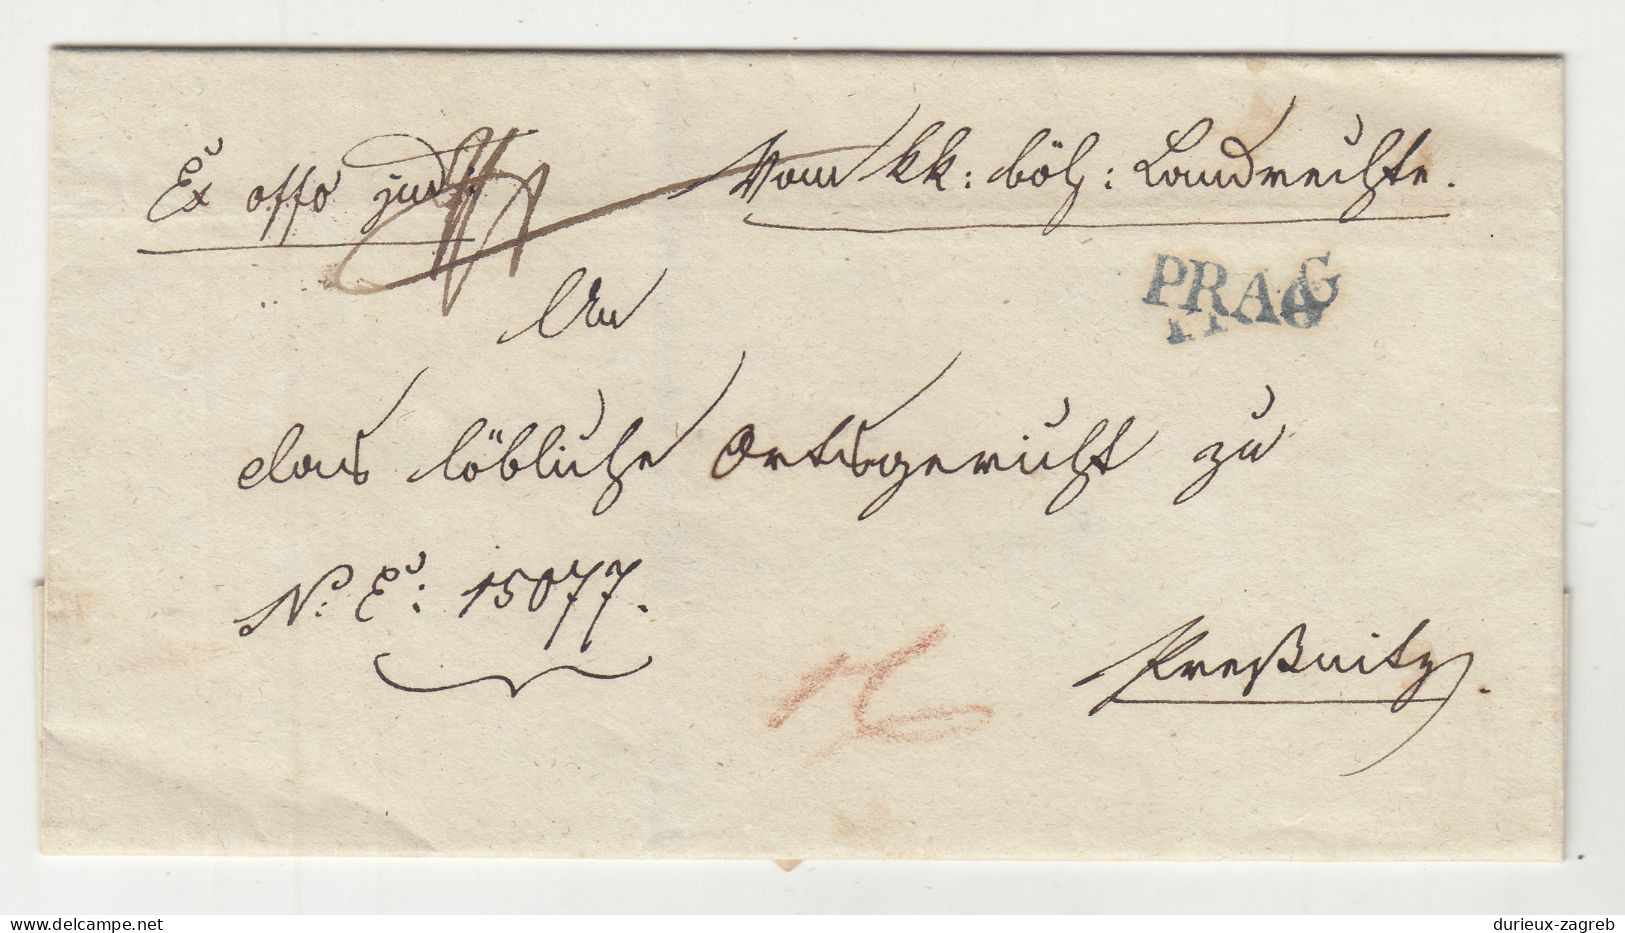 Ex offo jud:
Vom kk: böh: Landrechte.
PRAG
An
das löbliche Ortsgericht zu
N: E: 15077.
Preßnitz.
16
delcampe.net
durieux-zagreb